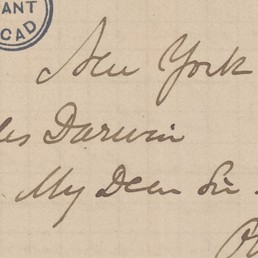 ANT
CAD
New York
es Darwin
My Dear Sir